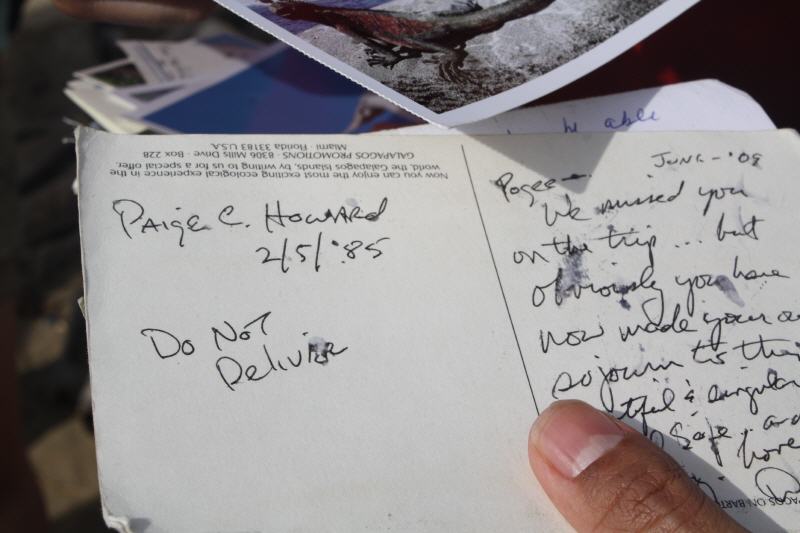 be able
Now you can enjoy the most exciting ecological experience in the
world, the Galapagos Islands, by writing to us for a special offer.
GALAPAGOS PROMOTIONS · 8306 Mills Drive · Box 228
Miami · Florida 33183 U.S.A.
PAIGE C. HOWARD
2/5/'85
Do NoT
Deliver
JUNE - '09
We missed you
on the trip... but
obviously you have
now made your
sojourn to this
& singular
Safe.. and